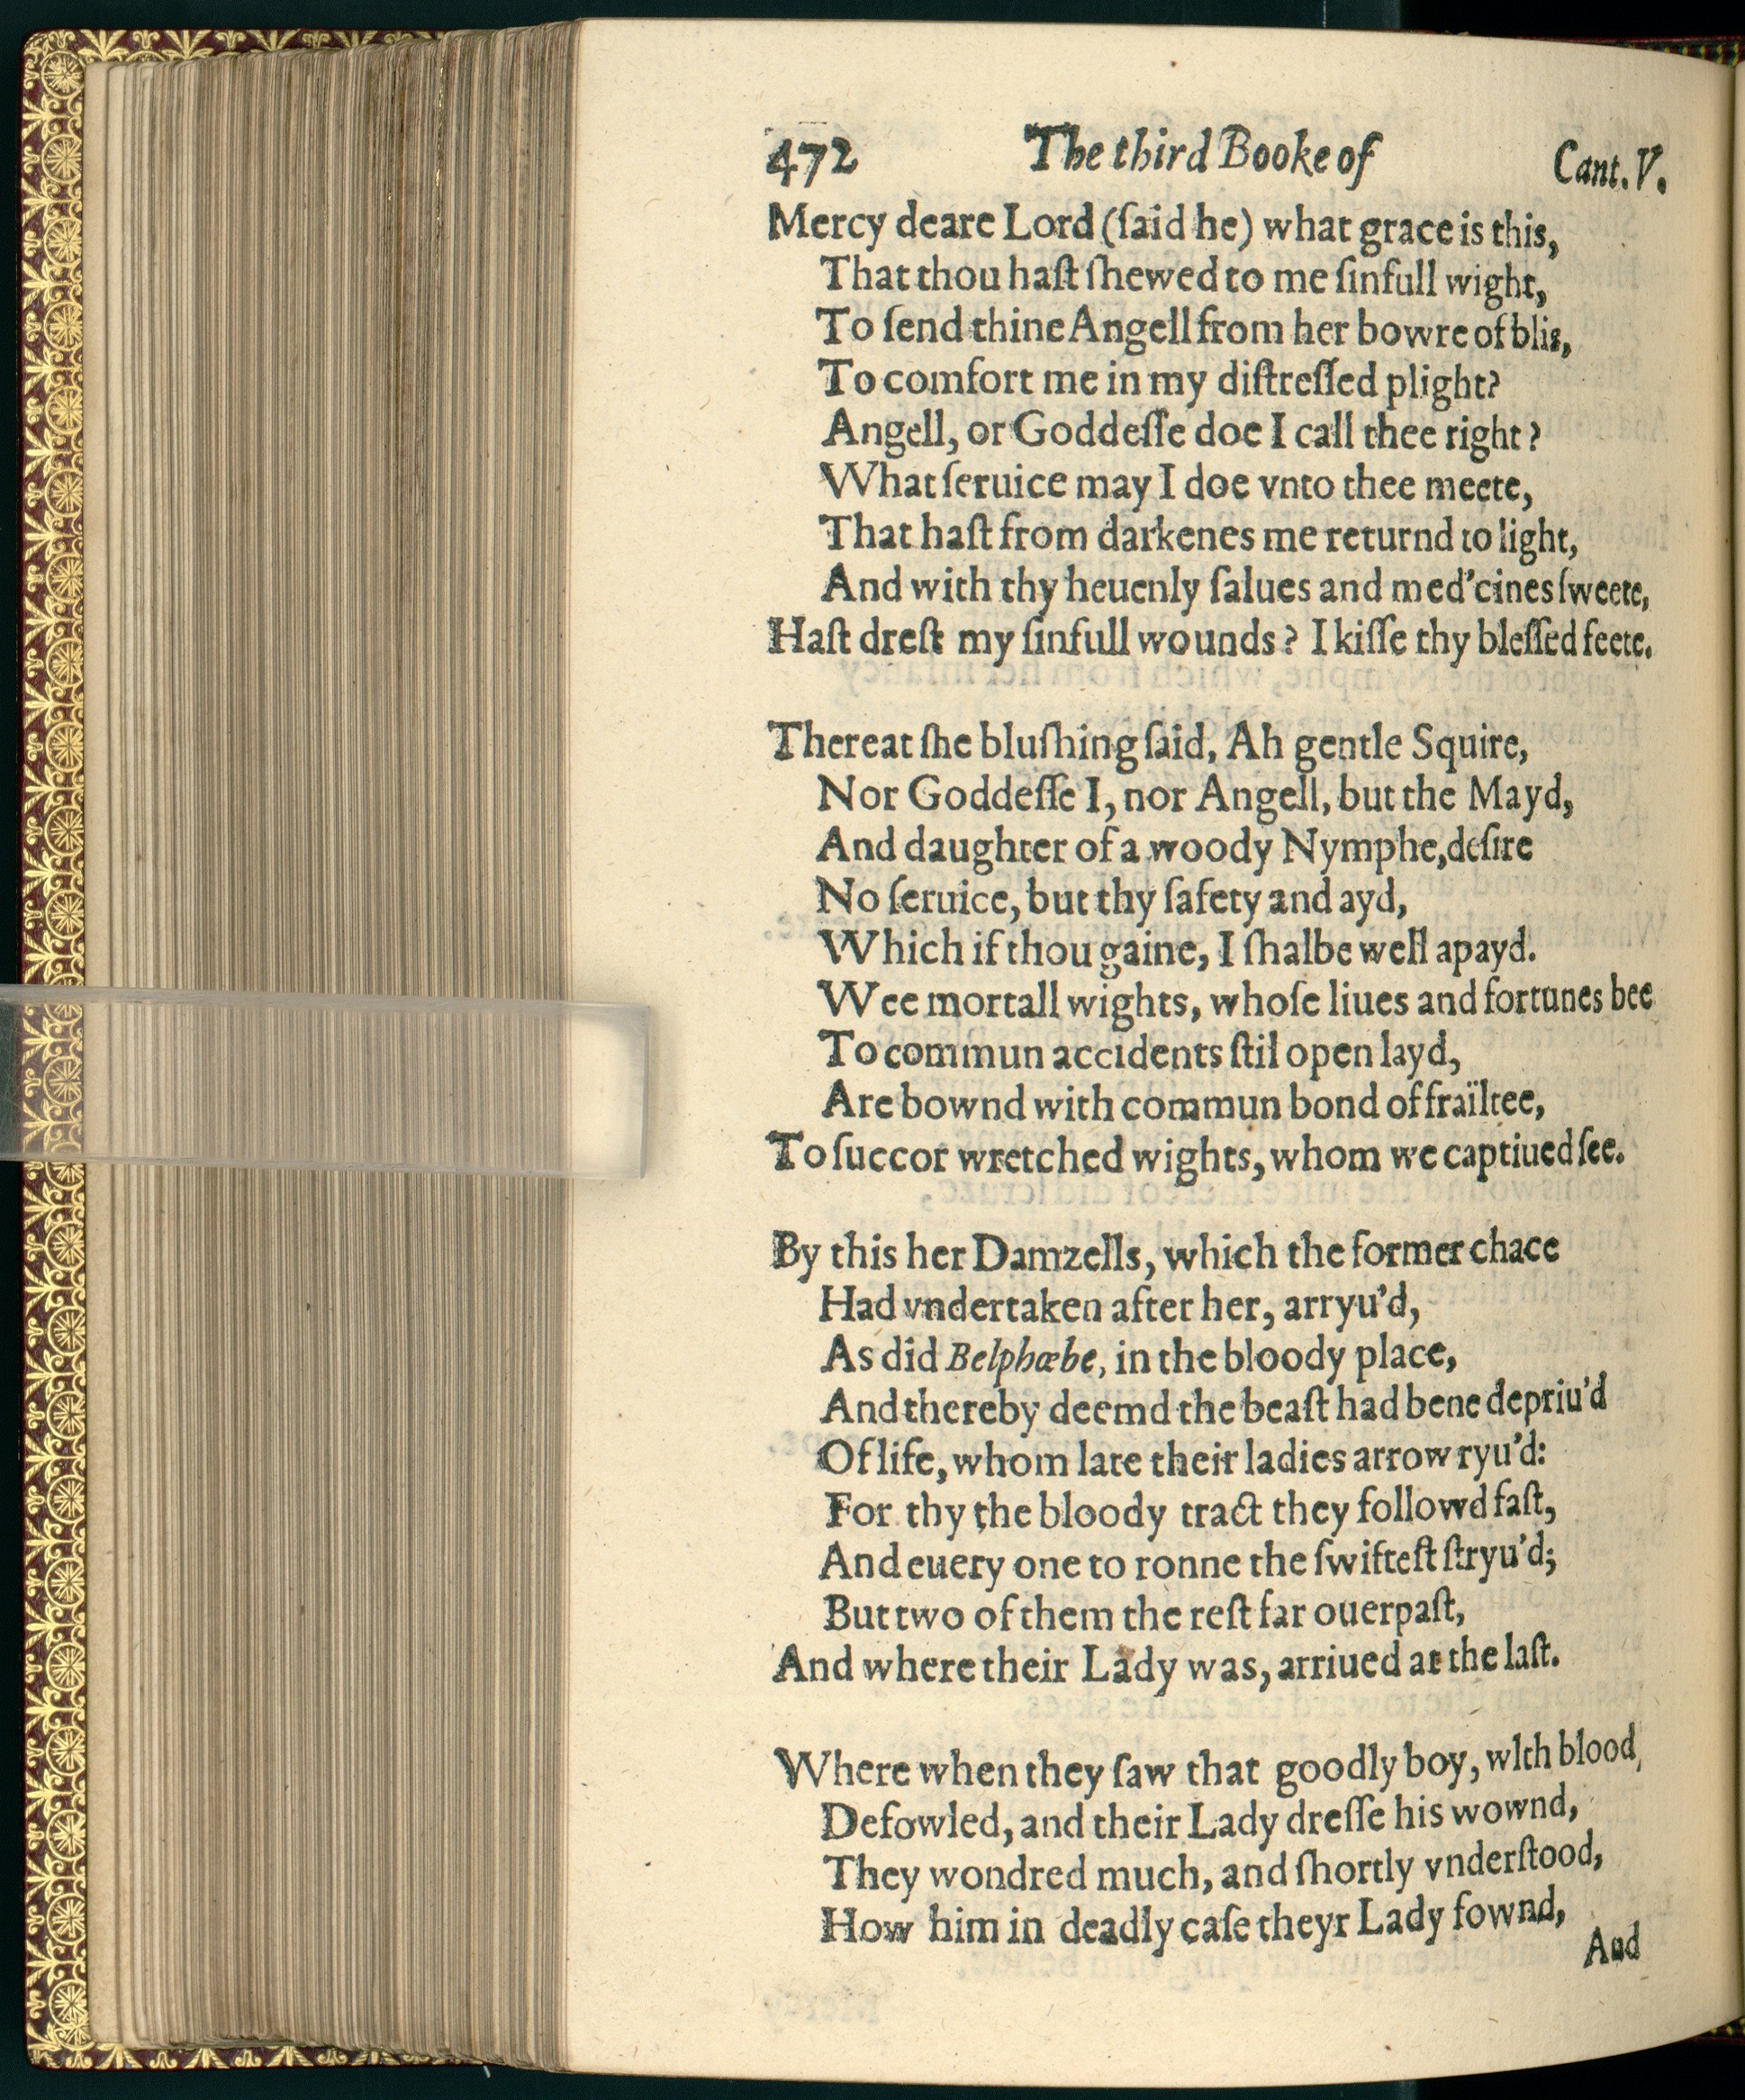 472 The third Booke of Cant. V.
Mercy deare Lord (ſaid he) what grace is this,
That thou haſt ſhewed to me ſinfull wight,
To ſend thine Angell from her bowre of blis,
To comfort me in my diſtreſſed plight?
Angell, or Goddeſſe doe I call thee right?
What ſeruice may I doe vnto thee meete,
That haſt from darkenes me returnd to light,
And with thy heuenly ſalues and med'cines ſweete,
Haſt dreſt my ſinfull wounds? I kiſſe thy bleſſed feete.
Thereat ſhe bluſhing ſaid, Ah gentle Squire,
Nor Goddeſſe I, nor Angell, but the Mayd,
And daughter of a woody Nymphe, deſire
No ſeruice, but thy ſafety and ayd,
Which if thou gaine, I ſhalbe well apayd.
Wee mortall wights, whoſe liues and fortunes bee
To commun accidents ſtil open layd,
Are bownd with commun bond of fraïltee,
To ſuccor wretched wights, whom we captiued ſee.
By this her Damzells, which the former chace
Had vndertaken after her, arryu'd,
As did Belphœbe, in the bloody place,
And thereby deemd the beaſt had bene depriu'd
Of life, whom late their ladies arrow ryu'd:
For thy the bloody tract they followd faſt,
And euery one to ronne the ſwifteſt ſtryu'd;
But two of them the reſt far ouerpaſt,
And where their Lady was, arriued at the laſt.
Where when they ſaw that goodly boy, wlth blood,
Defowled, and their Lady dreſſe his wownd,
They wondred much, and ſhortly vnderſtood,
How him in deadly caſe theyr Lady fownd,
And